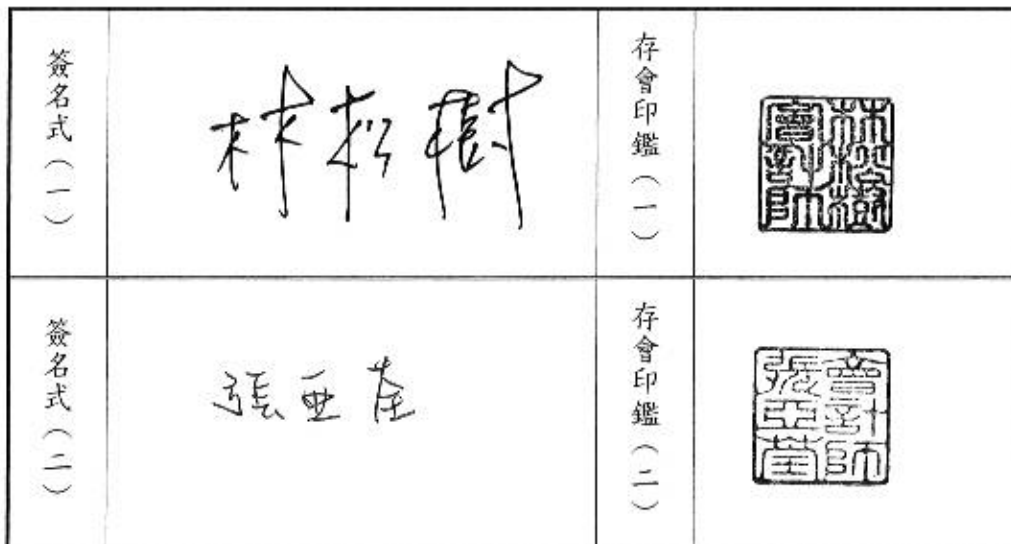 簽名式（一）
林松樹
存會印鑑（一）
林松樹會計師
簽名式（二）
張亞荃
存會印鑑（二）
會計師張亞荃